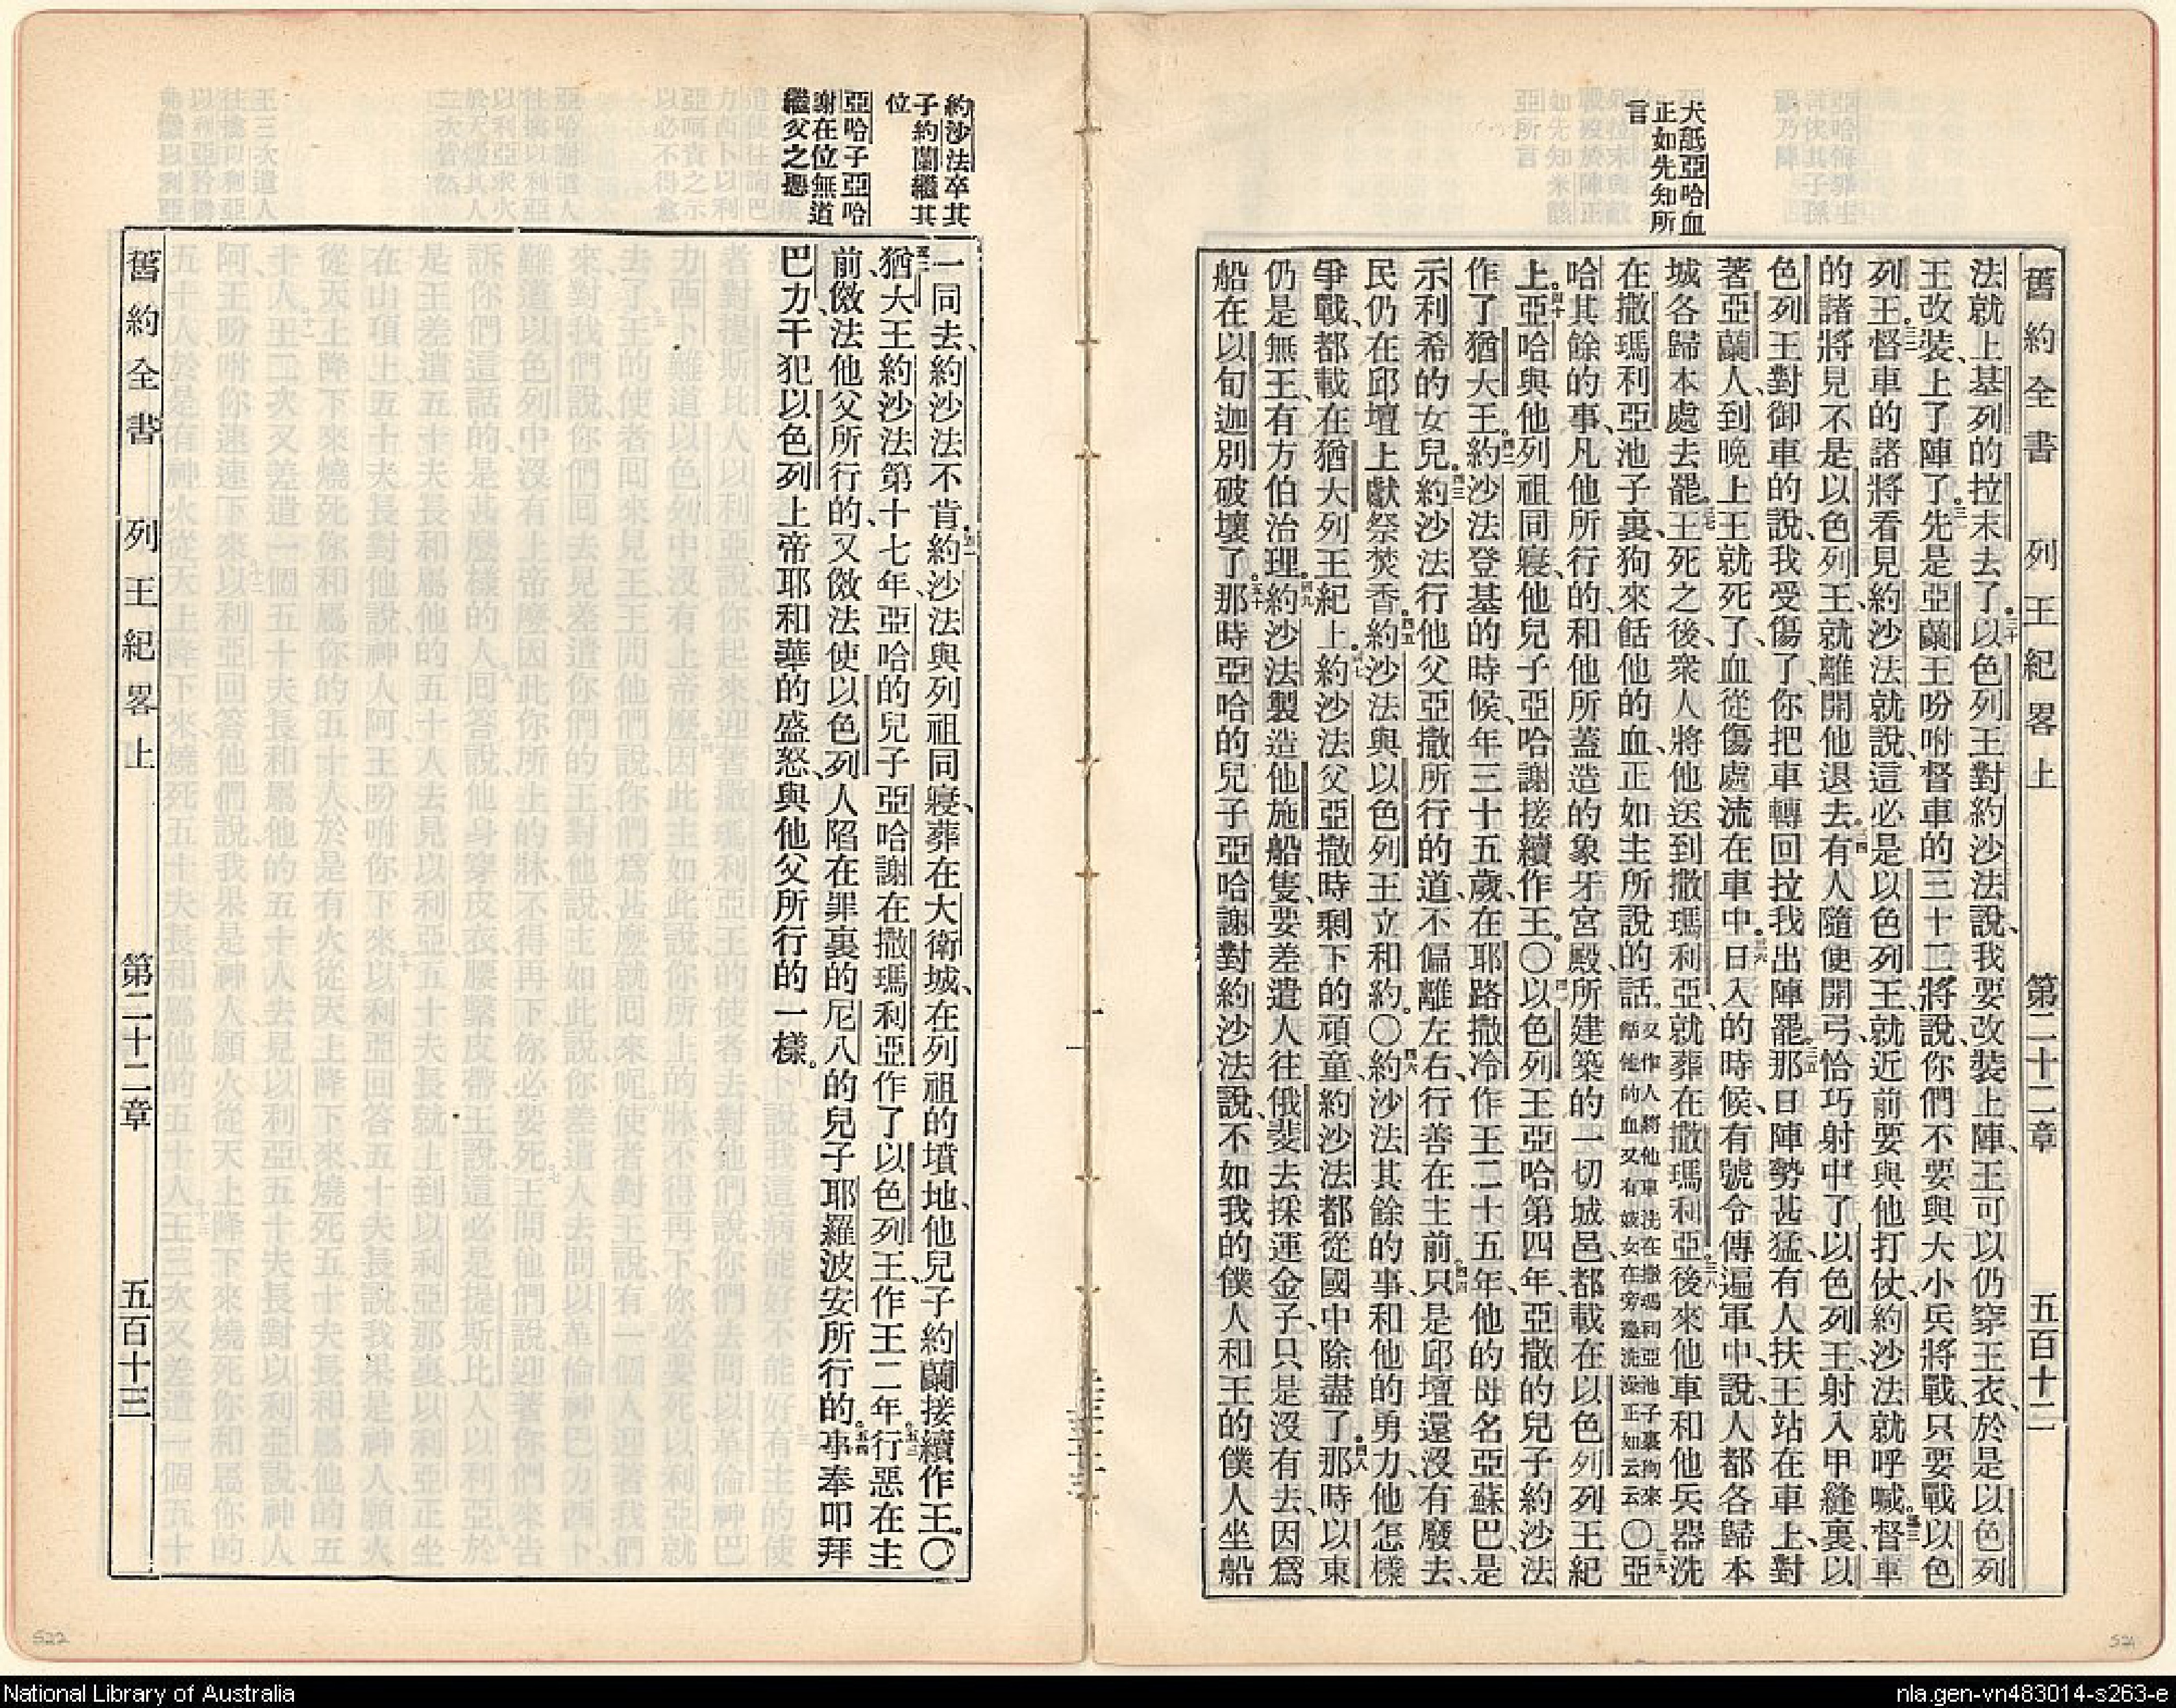 犬舐亞哈血
正如先知所
言
舊約全書 列王紀畧上 第二十二章 五百十二
法就上基列的拉末去了。三十以色列王對約沙法說、我要改裝上陣、王可以仍穿王衣、於是以色列
王改裝、上了陣了。三一先是亞蘭王吩咐督車的三十二將說、你們不要與大小兵將戰、只要戰以色
列王。三二督車的諸將看見約沙法就說、這必是以色列王、就近前要與他打仗、約沙法就呼喊。三三督車
的諸將見不是以色列王、就離開他退去。三四有人隨便開弓、恰巧射中了以色列王、射入甲縫裏、以
色列王對御車的說、我受傷了、你把車轉回、拉我出陣罷。三五那日陣勢甚猛、有人扶王站在車上、對
著亞蘭人、到晚上王就死了、血從傷處流在車中。三六日入的時候、有號令傳遍軍中、說、人都各歸本
城、各歸本處去罷。三七王死之後、衆人將他送到撒瑪利亞、就葬在撒瑪利亞。三八後來他車和他兵器洗
在撒瑪利亞池子裏、狗來餂他的血、正如主所說的話。又作人將他車洗在撒瑪利亞池子裏狗來餂他的血又有妓女在旁邊洗澡正如云云〇三九亞
哈其餘的事、凡他所行的、和他所蓋造的象牙宮殿、所建築的一切城邑、都載在以色列列王紀
上。四十亞哈與他列祖同寢、他兒子亞哈謝接續作王。〇四一以色列王亞哈第四年、亞撒的兒子約沙法
作了猶大王。四二約沙法登基的時候、年三十五歲、在耶路撒冷作王二十五年、他的母名亞蘇巴、是
示利希的女兒。四三約沙法行他父亞撒所行的道、不偏離左右、行善在主前。四四只是邱壇還沒有廢去、
民仍在邱壇上獻祭焚香。四五約沙法與以色列王立和約。〇四六約沙法其餘的事、和他的勇力、他怎樣
爭戰、都載在猶大列王紀上。四七約沙法父亞撒時剩下的頑童、約沙法都從國中除盡了。四八那時以東
仍是無王、有方伯治理。四九約沙法製造他施船隻、要差遣人往俄斐去採運金子、只是沒有去、因爲
船在以旬迦別破壞了。五十那時亞哈的兒子亞哈謝對約沙法說、不如我的僕人和王的僕人坐船
約沙法卒其
子約蘭繼其
位
亞哈子亞哈
謝在位無道
繼父之愚
一同去、約沙法不肯。五一約沙法與列祖同寢、葬在大衛城、在列祖的墳地、他兒子約蘭接續作王。〇
五二猶大王約沙法第十七年、亞哈的兒子亞哈謝在撒瑪利亞作了以色列王、作王二年。五三行惡在主
前、傚法他父所行的、又傚法使以色列人陷在罪裏的尼八的兒子耶羅波安所行的。五四事奉叩拜
巴力、干犯以色列上帝耶和華的盛怒、與他父所行的一樣。
舊約全書 列王紀畧上 第二十二章 五百十三
522
521
National Library of Australia
nla.gen-vn483014-s263-e